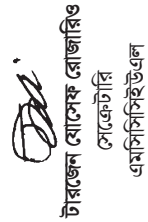 টারজেন যোসেফ রোজারিও
সেক্রেটারি
এমসিসিসিইউএল